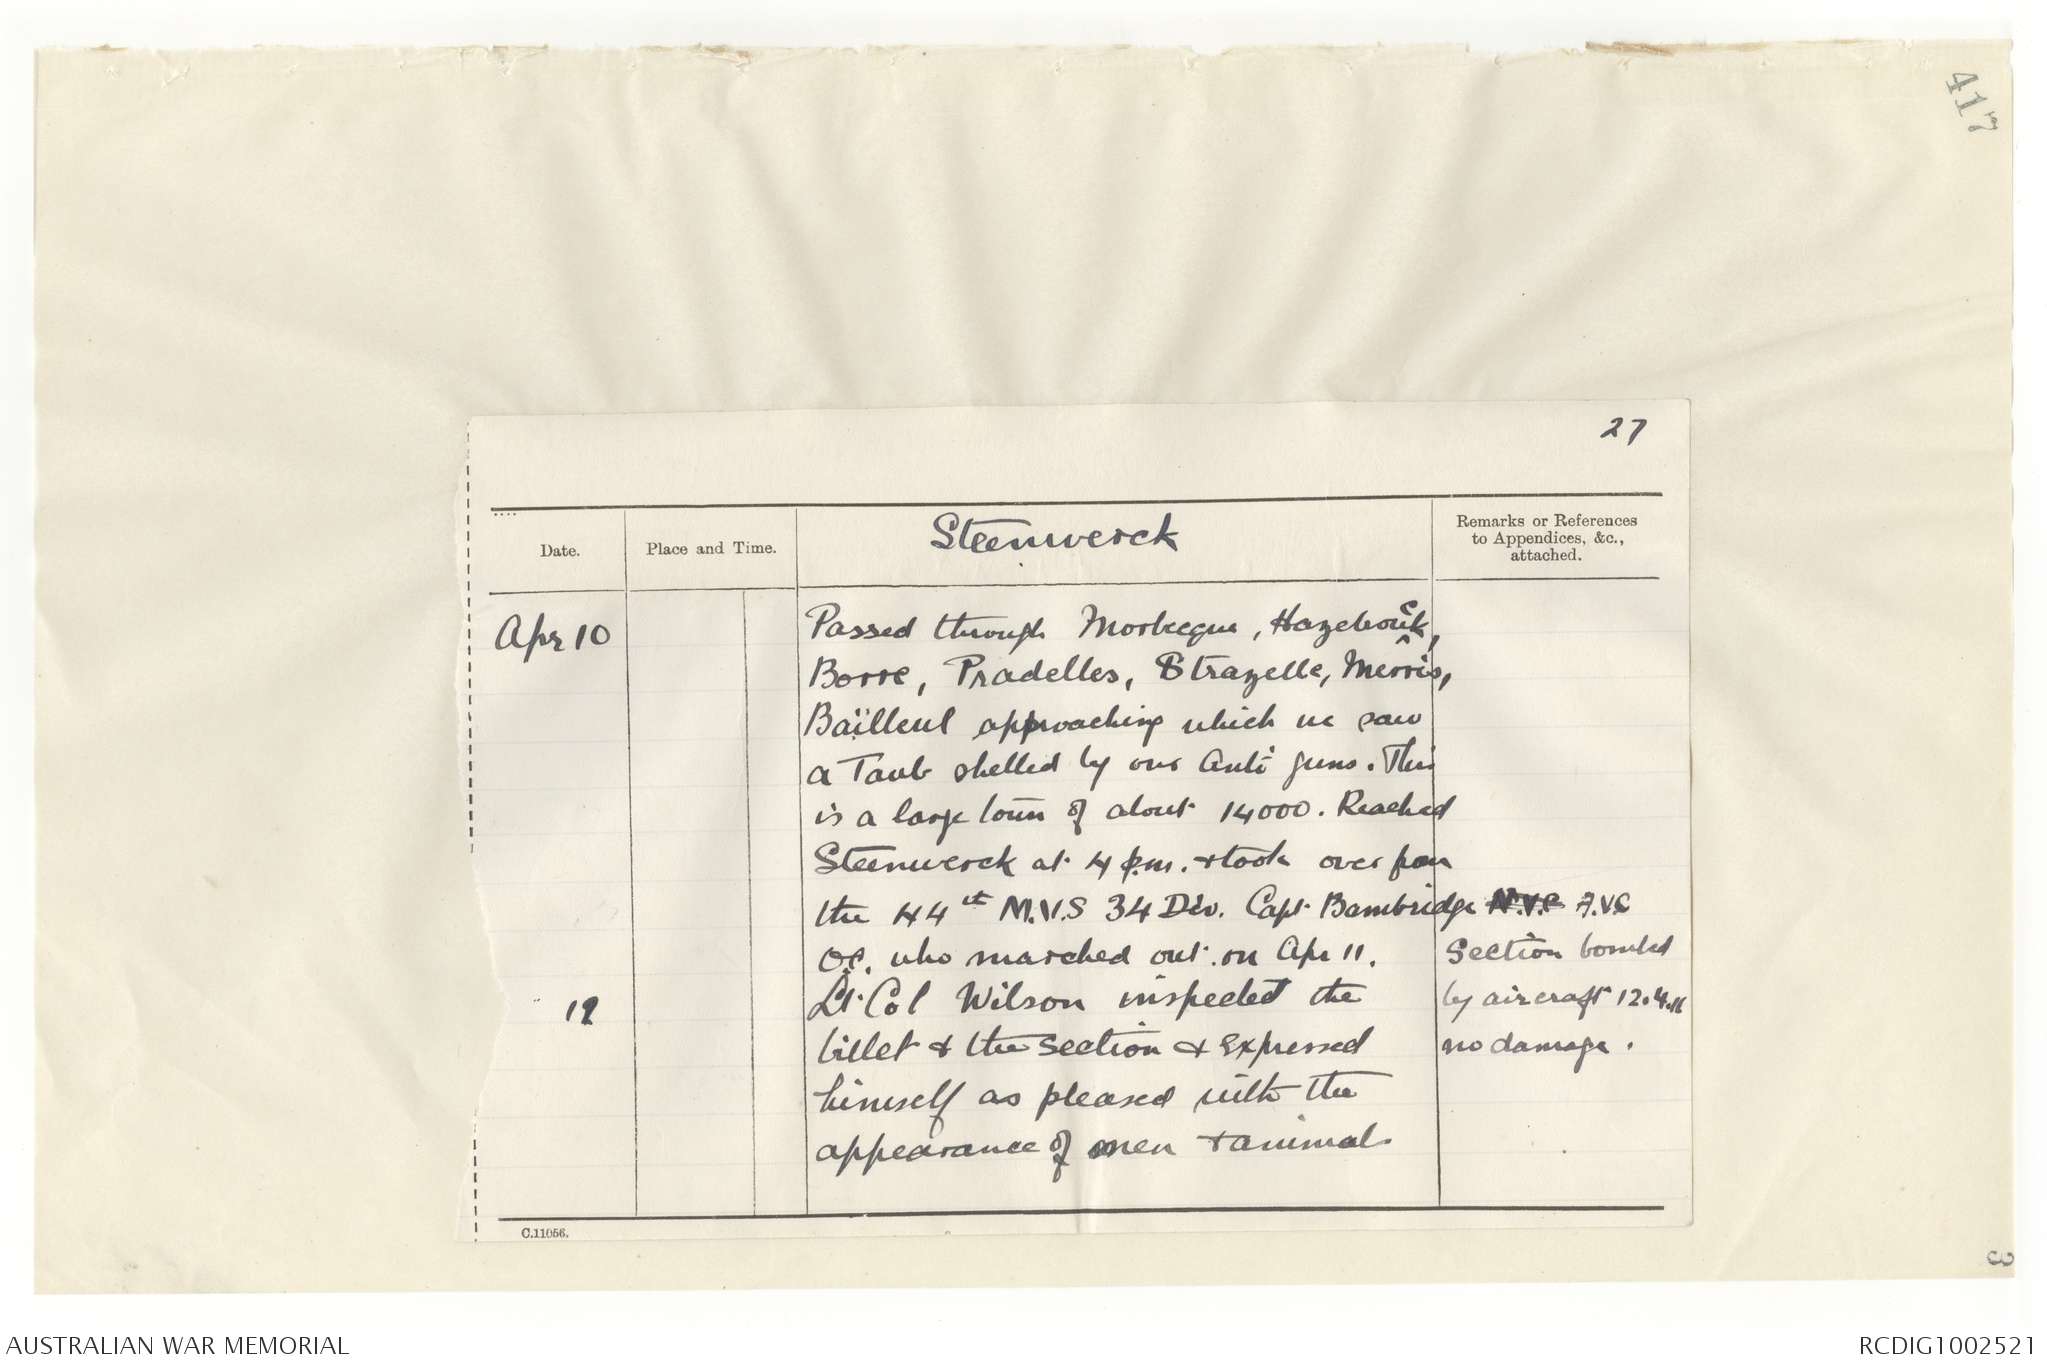 417
27
Date.
Place and Time.
Steenwerck
Remarks or References
to Appendices, &c.,
attached.
Apr 10
Passed through Morbecque, Hazebrouck,
Borre, Pradelles, Strazelle, Merris,
Bailleul approaching which we saw
a Taub shelled by our Anti guns. This
is a large town of about 14000. Reached
Steenwerck at 4 p.m. & took over from
the 44th M.V.S 34 Div. Capt Bambridge N.V.C A.V.C
OC. who marched out on Apr 11.
Section bombed
" 12
Lt Col Wilson inspected the
by aircraft 12.4.16
billet & the Section & Expressed
no damage.
himself as pleased with the
appearance of men & animals
C.11056.
3
AUSTRALIAN WAR MEMORIAL
RCDIG1002521